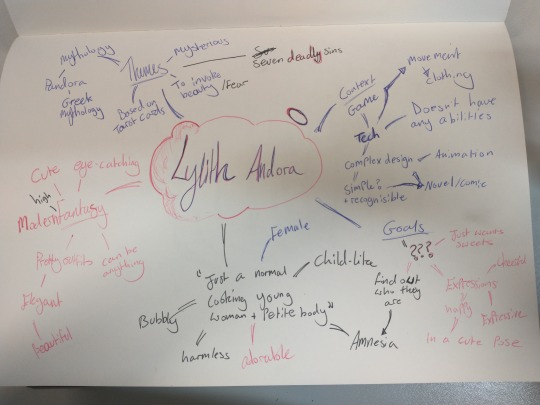 Lylith Andora
Themes
mythology
Pandora
Greek
Mythology
Based on
Tarot cards
Mysterious
To invoke
beauty /fear
Seven deadly sins
Context
Game
Tech
movement
clothing
Doesn't have
any abilities
complex design
Animation
Simple?
+ recognisible
Novel/comic
Cute eye-catching
high
Modern Fantasy
Pretty outfits
can be
anything
Elegant
beautiful
Female
"Just a normal
looking young
woman + Petite body"
Child-like
Bubbly
harmless
adorable
Amnesia
Goals
"???
Just wants
sweets
Find out
who they
are
Expressions
Cheerful
Expressive
In a cute pose